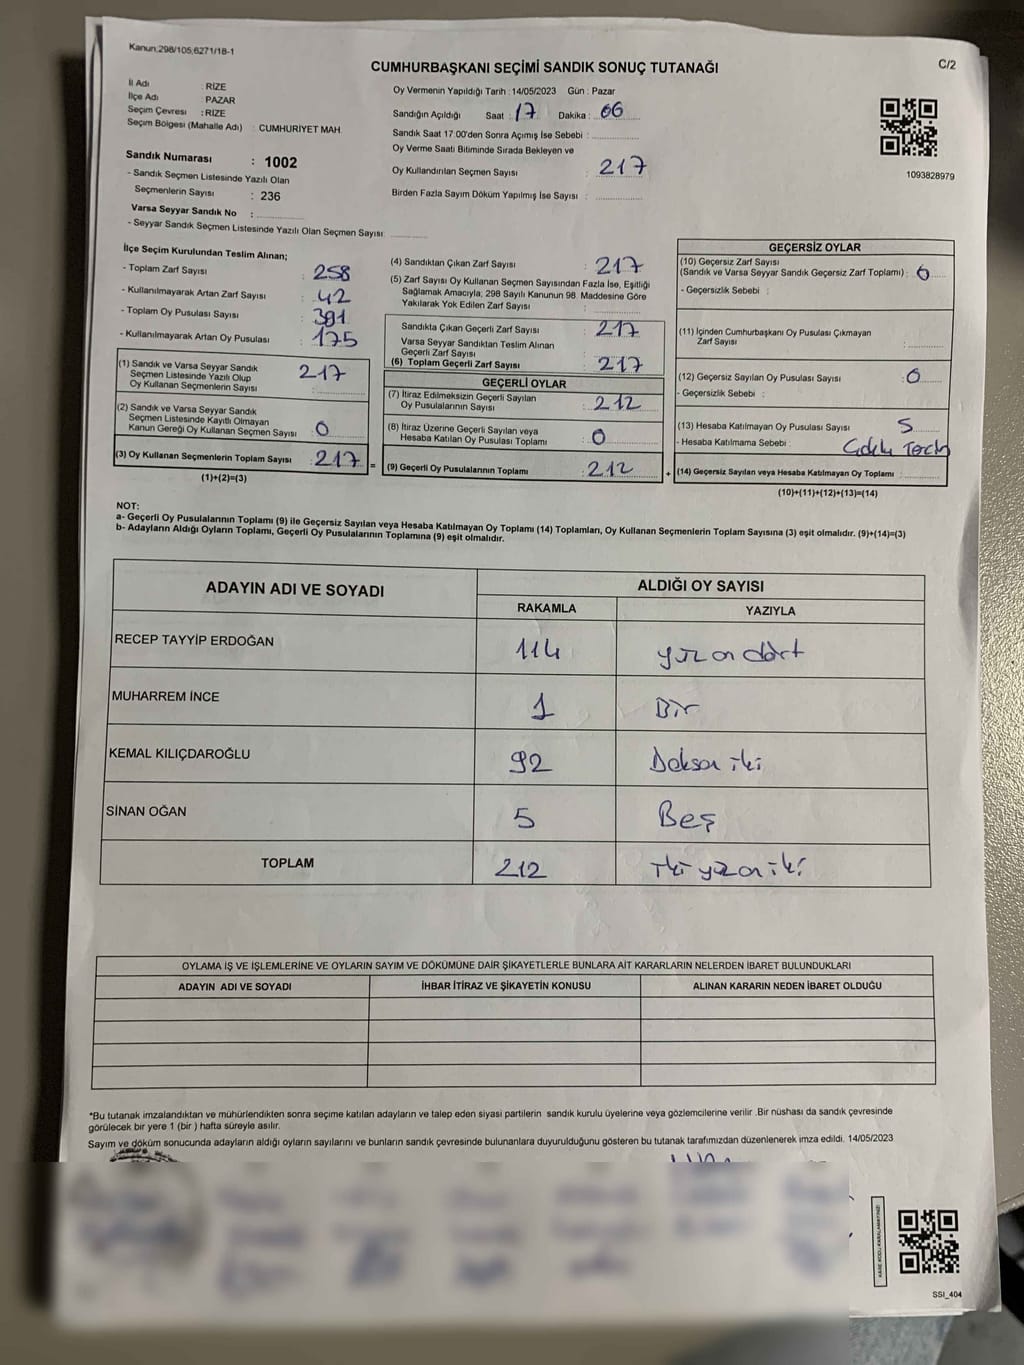 Kanun;298/105;6271/18-1
C/2
CUMHURBAŞKANI SEÇİMİ SANDIK SONUÇ TUTANAĞI
İl Adı : RİZE
İlçe Adı : PAZAR
Seçim Çevresi : RİZE
Seçim Bölgesi (Mahalle Adı) : CUMHURİYET MAH.
Sandık Numarası : 1002
- Sandık Seçmen Listesinde Yazılı Olan
Seçmenlerin Sayısı : 236
Varsa Seyyar Sandık No :
- Seyyar Sandık Seçmen Listesinde Yazılı Olan Seçmen Sayısı:
Oy Vermenin Yapıldığı Tarih : 14/05/2023 Gün : Pazar
Sandığın Açıldığı Saat : 17 Dakika : 06
Sandık Saat 17.00'den Sonra Açımış İse Sebebi :
Oy Verme Saati Bitiminde Sırada Bekleyen ve
Oy Kullandırılan Seçmen Sayısı : 217
Birden Fazla Sayım Döküm Yapılmış İse Sayısı :
1093828979
İlçe Seçim Kurulundan Teslim Alınan;
- Toplam Zarf Sayısı : 258
- Kullanılmayarak Artan Zarf Sayısı : 42
- Toplam Oy Pusulası Sayısı : 391
- Kullanılmayarak Artan Oy Pusulası : 175
(1) Sandık ve Varsa Seyyar Sandık
Seçmen Listesinde Yazılı Olup
Oy Kullanan Seçmenlerin Sayısı : 217
(2) Sandık ve Varsa Seyyar Sandık
Seçmen Listesinde Kayıtlı Olmayan
Kanun Gereği Oy Kullanan Seçmen Sayısı : 0
(3) Oy Kullanan Seçmenlerin Toplam Sayısı : 217
(1)+(2)=(3)
(4) Sandıktan Çıkan Zarf Sayısı : 217
(5) Zarf Sayısı Oy Kullanan Seçmen Sayısından Fazla İse, Eşitliği
Sağlamak Amacıyla, 298 Sayılı Kanunun 98. Maddesine Göre
Yakılarak Yok Edilen Zarf Sayısı :
Sandıkta Çıkan Geçerli Zarf Sayısı : 217
Varsa Seyyar Sandıktan Teslim Alınan
Geçerli Zarf Sayısı :
(6) Toplam Geçerli Zarf Sayısı : 217
GEÇERLİ OYLAR
(7) İtiraz Edilmeksizin Geçerli Sayılan
Oy Pusulalarının Sayısı : 212
(8) İtiraz Üzerine Geçerli Sayılan veya
Hesaba Katılan Oy Pusulası Toplamı : 0
= (9) Geçerli Oy Pusulalarının Toplamı : 212
GEÇERSİZ OYLAR
(10) Geçersiz Zarf Sayısı
(Sandık ve Varsa Seyyar Sandık Geçersiz Zarf Toplamı) : 0
- Geçersizlik Sebebi :
(11) İçinden Cumhurbaşkanı Oy Pusulası Çıkmayan
Zarf Sayısı :
(12) Geçersiz Sayılan Oy Pusulası Sayısı : 0
- Geçersizlik Sebebi :
(13) Hesaba Katılmayan Oy Pusulası Sayısı : 5
- Hesaba Katılmama Sebebi :
+ (14) Geçersiz Sayılan veya Hesaba Katılmayan Oy Toplamı :
(10)+(11)+(12)+(13)=(14)
NOT:
a- Geçerli Oy Pusulalarının Toplamı (9) ile Geçersiz Sayılan veya Hesaba Katılmayan Oy Toplamı (14) Toplamları, Oy Kullanan Seçmenlerin Toplam Sayısına (3) eşit olmalıdır. (9)+(14)=(3)
b- Adayların Aldığı Oyların Toplamı, Geçerli Oy Pusulalarının Toplamına (9) eşit olmalıdır.
ADAYIN ADI VE SOYADI ALDIĞI OY SAYISI
RAKAMLA YAZIYLA
RECEP TAYYİP ERDOĞAN 114 yüz on dört
MUHARREM İNCE 1 Bir
KEMAL KILIÇDAROĞLU 92 Doksan iki
SİNAN OĞAN 5 Beş
TOPLAM 212 İki yüz on iki
OYLAMA İŞ VE İŞLEMLERİNE VE OYLARIN SAYIM VE DÖKÜMÜNE DAİR ŞİKAYETLERLE BUNLARA AİT KARARLARIN NELERDEN İBARET BULUNDUKLARI
ADAYIN ADI VE SOYADI İHBAR İTİRAZ VE ŞİKAYETİN KONUSU ALINAN KARARIN NEDEN İBARET OLDUĞU
*Bu tutanak imzalandıktan ve mühürlendikten sonra seçime katılan adayların ve talep eden siyasi partilerin sandık kurulu üyelerine veya gözlemcilerine verilir .Bir nüshası da sandık çevresinde
görülecek bir yere 1 (bir ) hafta süreyle asılır.
Sayım ve döküm sonucunda adayların aldığı oyların sayılarını ve bunların sandık çevresinde bulunanlara duyurulduğunu gösteren bu tutanak tarafımızdan düzenlenerek imza edildi. 14/05/2023
SSI_404